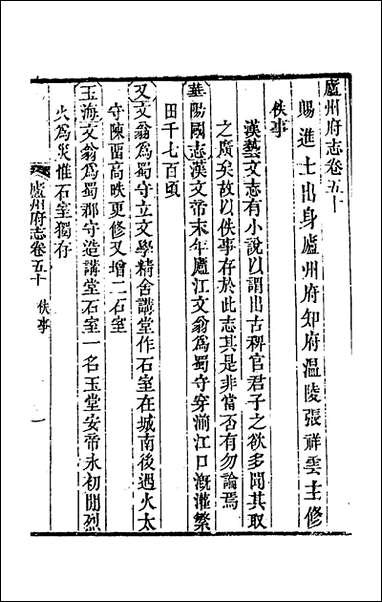 廬州府志卷五十
賜進士出身廬州府知府溫陵張祥雲主修
佚事
漢藝文志有小說以謂出古稗官君子之欲多聞其取
之廣矣故以佚事存於此志其是非當否有勿論焉
華陽國志漢文帝末年廬江文翁為蜀守穿湔江口漑灌繁
田千七百頃
又文翁為蜀守立文學精舍講堂作石室在城南後遇火太
守陳畱高昳更修又增二石室
玉海文翁為蜀郡守造講堂石室一名玉堂安帝永初閒烈
火為災惟石室獨存
廬州府志卷五十 佚事 一